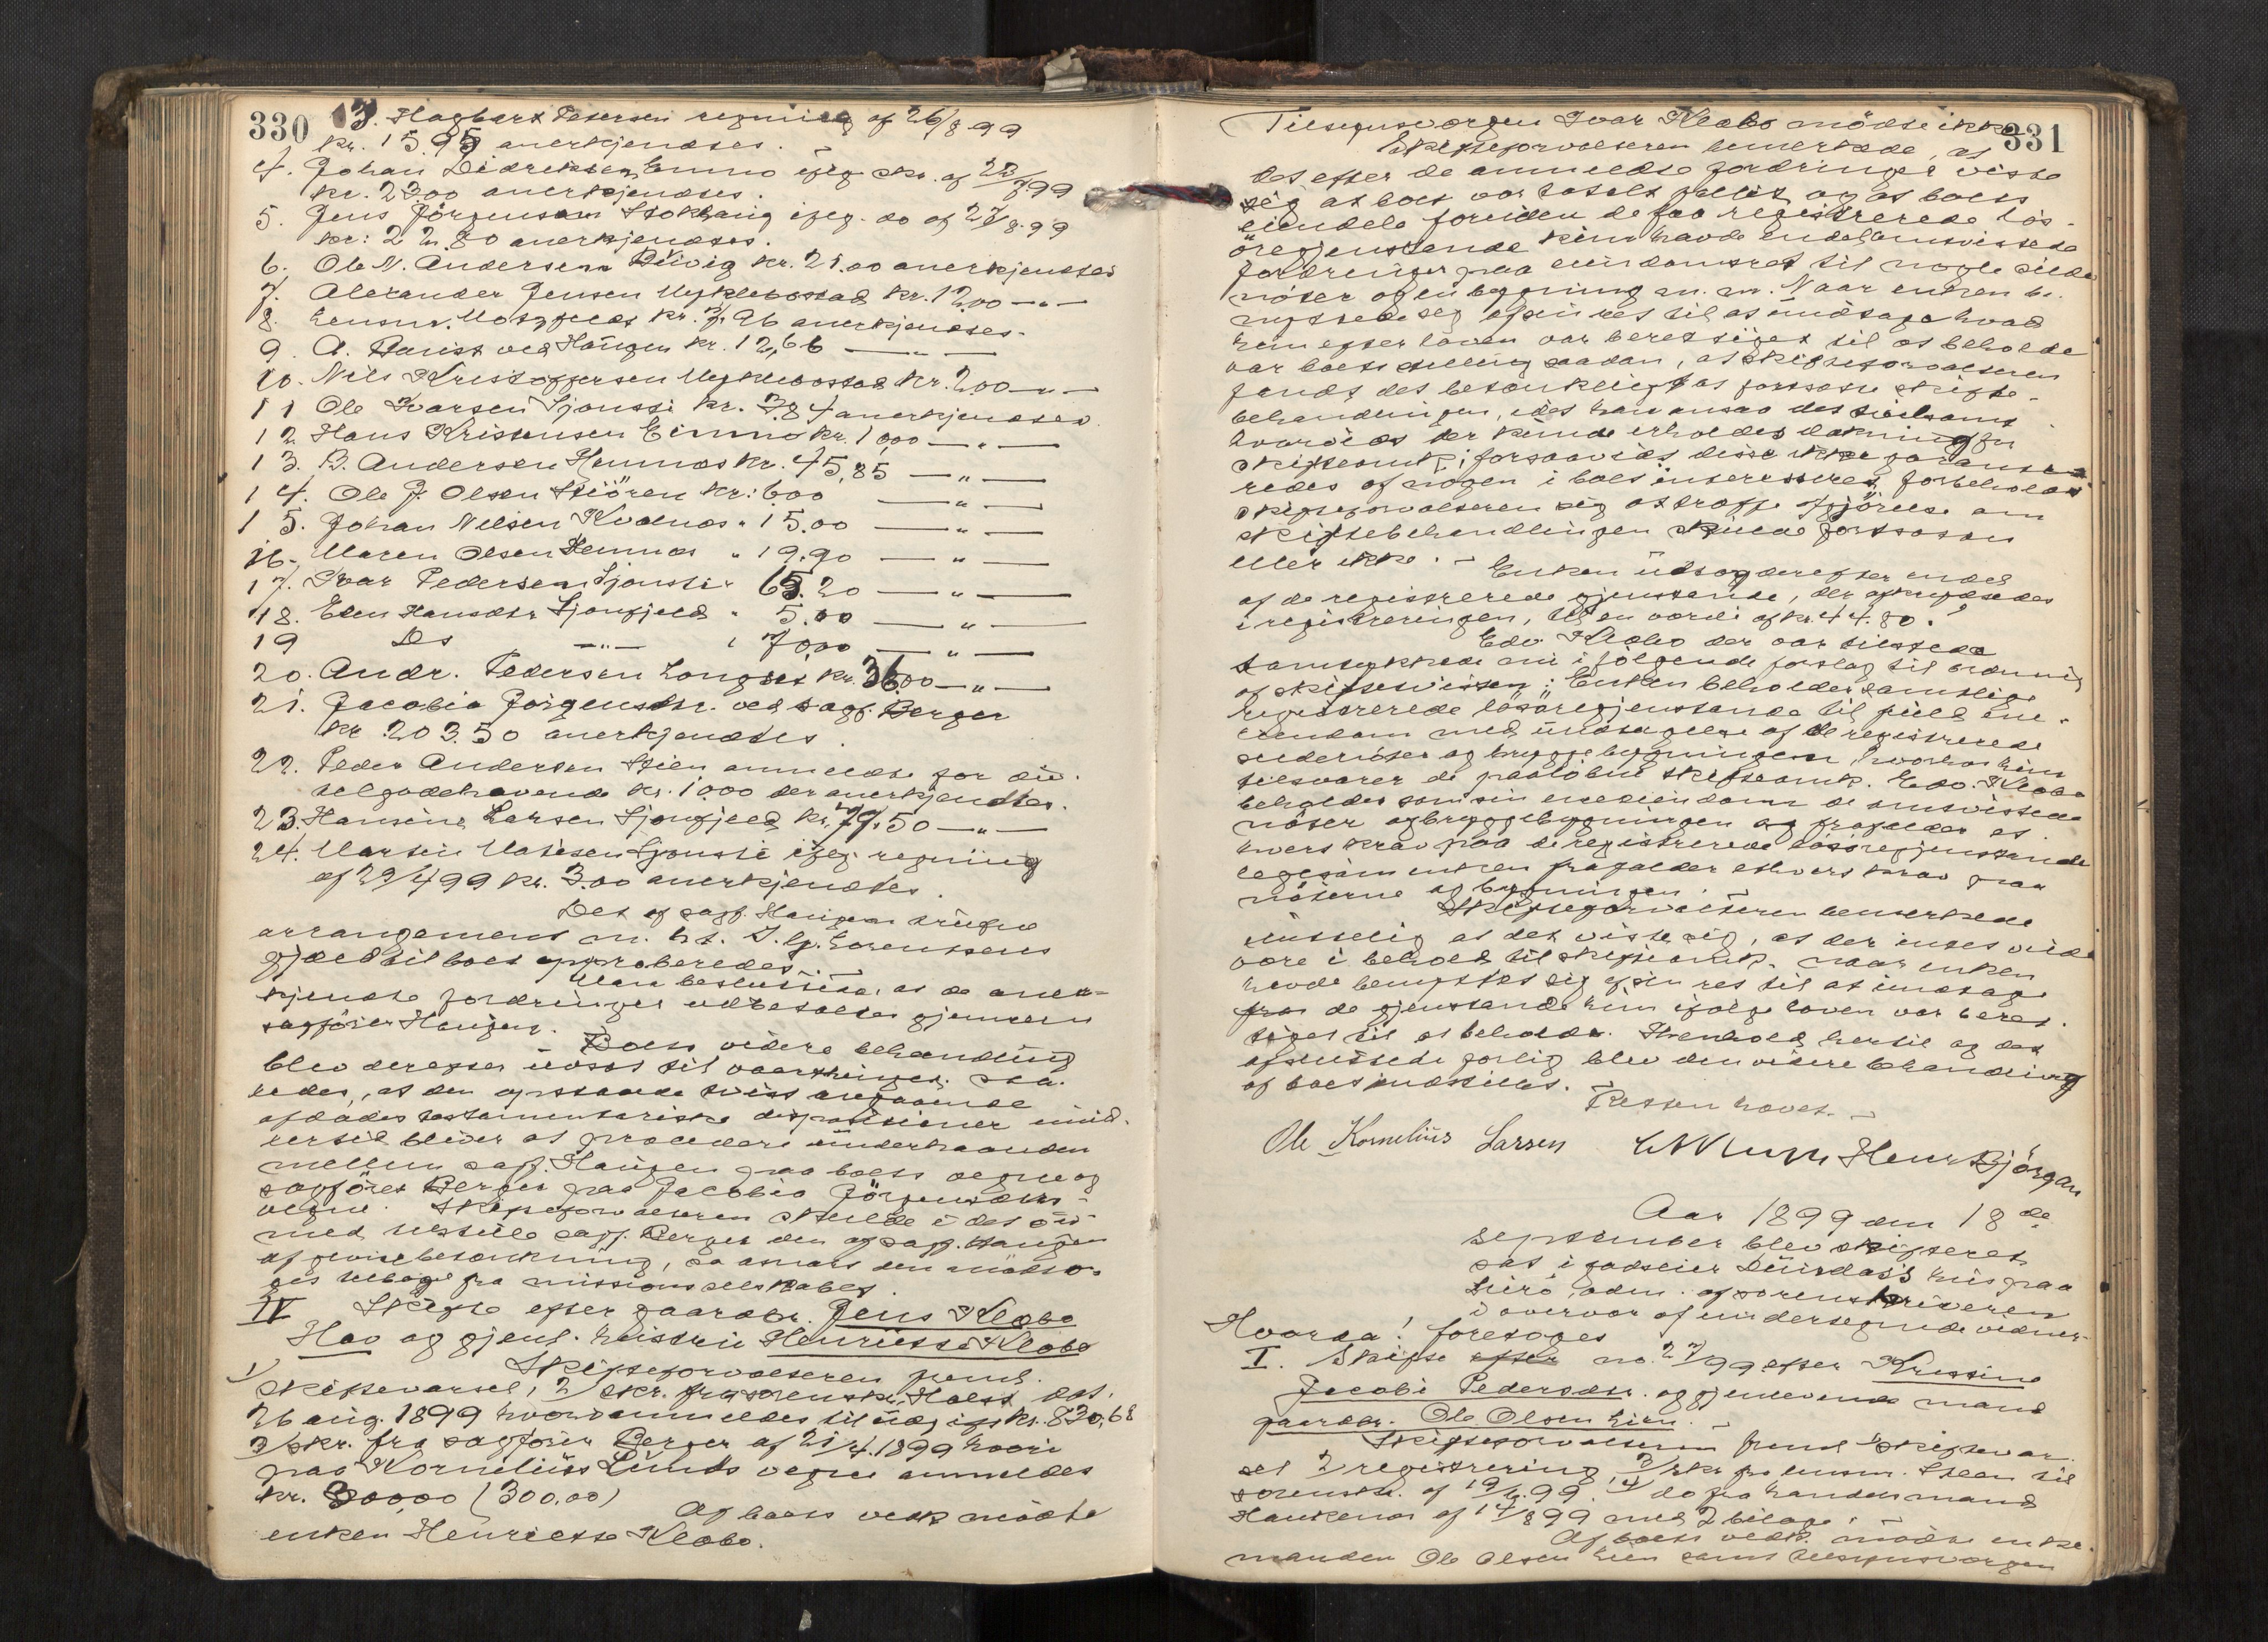 330
3. Hagbart Petersen regning af 26/8 99
kr. 15.95 anerkjendtes.
4. Johan Didriksen Enmo ifølg skr. af 23/8.99
kr. 23.00 anerkjendtes.
5. Jens Jörgensen Stokhaug ifølg. do af 27/8.99
kr: 22.80 anerkjendtes.
6. Ole N. Andersen kr. 21.00 anerkjendtes
7. Alexander Jensen Myklebostad kr. 12.00 — „ —
8. Lensm. Motzfeldt kr. 7.96 anerkjendtes.
9. A. ved Haugen kr. 12,66 — „ —
10. Nils Kristoffersen Myklebostad kr. 2.00 — „ —
11 Ole Ivarsen Sjonsti kr. 7.84 anerkjendtes.
12 Hans Kristensen Einmo kr. 1,00 — „ —
13. B. Andersen Hemnæs kr. 45,85 — „ —
14. Ole J. Olsen kr: 6.00 — „ —
15. Johan Nilsen Kvalnæs „ 15.00 — „ —
16. Maren Olsen Hemnæs „ 19.90 — „ —
17. Ivar Pedersen Sjonsti „ 65.20 — „ —
18. Elen Hansdtr Sjonfjeld „ 5.00 — „ —
19 Ds — „ — „ 70.00 — „ —
20. Andr. Pedersen Langset kr. 36.00 — „ —
21. Jacobia Jörgensdtr. ved sagf. Berger
kr. 203.50 anerkjendtes.
22. Peder Andersen Stien anmeldte for sit
tilgodehavende kr. 10.00 der anerkjendtes.
23. Hansine Larsen Sjonfjeld kr. 79.50 — „ —
24. Martin Matisen Sjonsti ifølg. regning
af 29/4 99 kr. 3.00 anerkjendtes.
Det af sagf. Haugen trufne
arrangement m. h. t. J. Lorentsens
gjæld til boet approberedes. —
Man besluttede, at de aner-
kjendte fordringer udbetaltes gjennem
sagfører Haugen.
Boets videre behandling
blev derefter udsat til vaarthinget. saa-
ledes, at den opstaaede tvist angaaende
afdødes testamentariske dispositioner imid-
lertid bliver at procedere underhaanden
mellem sagf. Haugen paa boets vegne og
sagförer Berger paa Jacobia Jörgensdtrs
vegne. Skifteforvalteren skulde i det öie-
med tilstille sagf. Berger den af sagf. Haugen
afgivne betænkning, saasnart den modto-
ges tilbage fra missionsselskabet.
IV Skifte efter gaardbr. Jens Klæbo
Hav og gjenl. hustru Henriette Klæbo
Skifteforvalteren freml.
1/ skiftevarsel, 2/ skr. fra sorenskr. Holst dat.
26 aug. 1899 hvori anmeldes tilgodeh. kr. 830,68
3/ skr. fra sagförer Berger af 21/4.1899 hvori
paa Kornelius Lunds vegne anmeldes
kr. 300,00 (300.00)
Af boets vedk. mödte
enken Henriette Klæbo.
331
Tilsynsværgen Ivar Klæbo mödte ikke.
Skifteforvalteren bemærkede, at
det efter de anmeldte fordringer viste
sig at boet var totalt fallit og at boets
eiendele foruden de faa registrerede lös-
öregjenstande kun havde endel omtvistede
fordringer paa eiendomsret til nogle silde
nöter og en bygning m. m. Naar enken be-
nyttede sig af sin ret til at undtage hvad
hun efter loven var berettiget til at beholde
var boets stilling saadan, at skifteforvalteren
fandt det betænkeligt at fortsætte skifte-
behandlingen, idet han ansaa det tvilsomt
hvorvidt der kunde erholdes dækning for
skifteomk.; forsaavidt disse ikke garante-
redes af nogen i boet interesseret, forbeholdt
skifteforvalteren sig at træffe afgjörelse om
skiftebehandlingen skulde fortsættes
eller ikke. — Enken udtog derefter endel
af de registrerede gjenstande, der afkrydsedes
i registreringen, til en værdi af kr. 44.80.
Edv. Klæbo der var tilstede
samtykkede nu i fölgende forslag til ordning
af skiftetvisten: Enken beholder samtlige
registrerede lösöregjenstande til fuld eie-
eiendom med undtagelse af de registrerede
sildenöter og bryggebygningen, hvorhos hun
tilsvarer de paalöbne skifteomk. Edv. Klæbo
beholder som sin eneeiendom de omtvistede
nöter og bryggebygningen og frafalder et-
hvert krav paa de registrerede lösöregjenstande
ligesom enken frafalder ethvert krav paa
nöterne og bygningen. —
Skifteforvalteren bemærkede
endelig at det viste sig, at der intet vilde
være i behold til skifteomk. naar enken
havde benyttet sig af sin ret til at undtage
fra de gjenstande hun ifølge loven var beret-
tiget til at beholde. I henhold hertil og det
afsluttede forlig blev den videre behandling
af boet indstillet.
Retten hævet. —
Ole Kornelius Larsen Henr Björgan
Aar 1899 den 18de
september blev skifteret
sat i handelsmand hus paa
adm. af sorenskriveren
i overvær af undertegnede vidner.
Hvorda! foretoges
I. Skifte efter no. 27/99 efter Kristine
Jacobi Pedersdtr. og gjenlevende mand
gaardbr. Ole Olsen
Skifteforvalteren freml. 1/ skiftevar-
sel 2/ registrering, 3/ skr. fra lensm. til
sorenskr. af 19/6.99. 4/ do fra handelsmand
af 14/8 99 med 2 bilage. —
Af boets vedk. mödte enke-
manden Ole Olsen samt tilsynsværgen